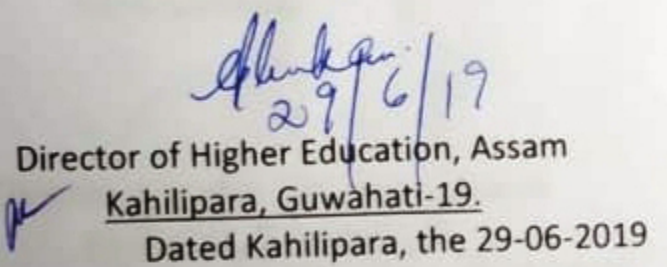 29/6/19
Director of Higher Education, Assam
Kahilipara, Guwahati-19.
Dated Kahilipara, the 29-06-2019